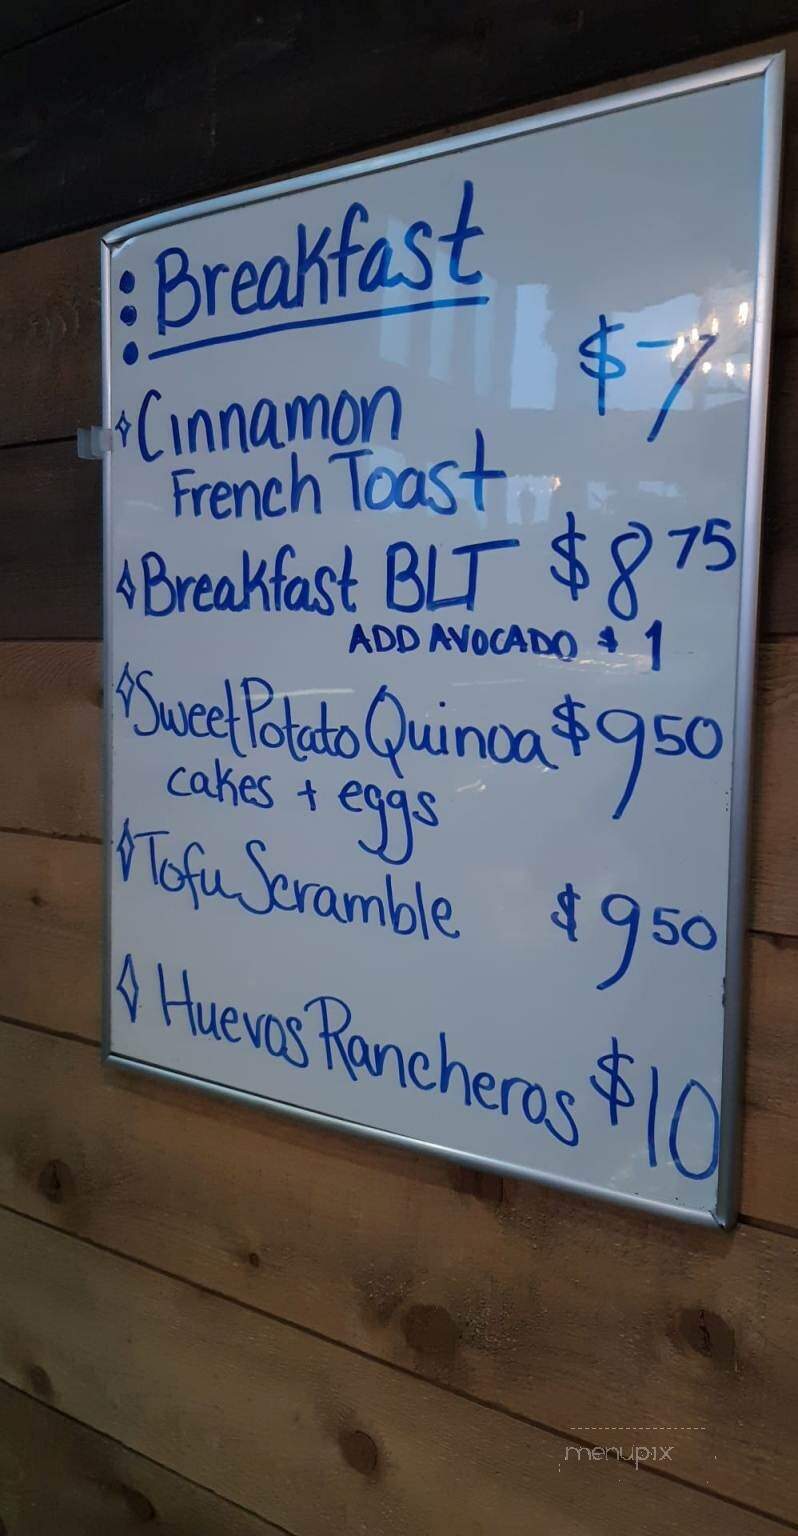 Breakfast
Cinnamon $7
French Toast
Breakfast BLT $8 75
ADD AVOCADO $1
Sweet Potato Quinoa $9 50
cakes + eggs
Tofu Scramble $9 50
Huevos Rancheros $10
menupix